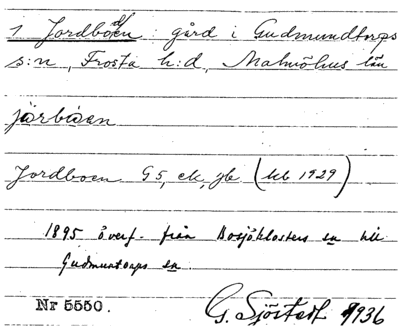 1 Jordboen gård i Gudmundtorps
s:n, Frosta h:d, Malmöhus län
Jordboen G5, ek, jb (kb 1929)
1895 överf. från Bosjöklosters sn till
Gudmuntorps sn
Nr 5550. G. Sjöstedt 1936